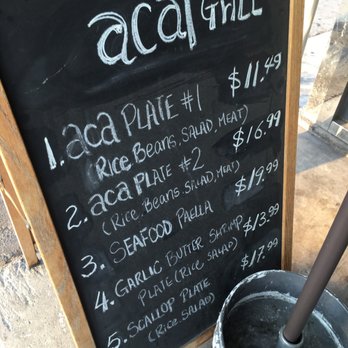 aca GRILL
1. aca PLATE #1 $11.49
(RICE, BEANS, SALAD, MEAT)
2. aca PLATE #2 $16.99
(RICE, BEANS, SALAD, MEAT)
3. SEAFOOD PAELLA $19.99
4. GARLIC BUTTER SHRIMP $13.99
PLATE (RICE, SALAD)
5. SCALLOP PLATE $17.99
(RICE, SALAD)